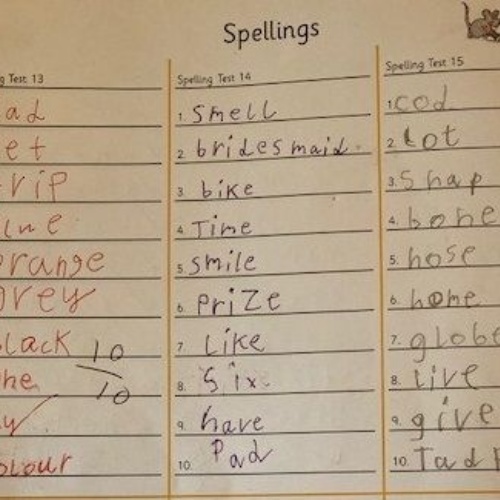 Spellings
g Test 13
ad
et
rip
range
rey
lack
10
10
he
y
olour
Spelling Test 14
1. Smell
2. bridesmaid.
3. bike
4. Time
5. smile
6. PriZe
7. Like
8. Six
9. have
10. Pad
Spelling Test 15
1. cod
2. lot
3. Snap
4. bone
5. hose
6. home
7. globe
8. Live
9. give
10. Tad